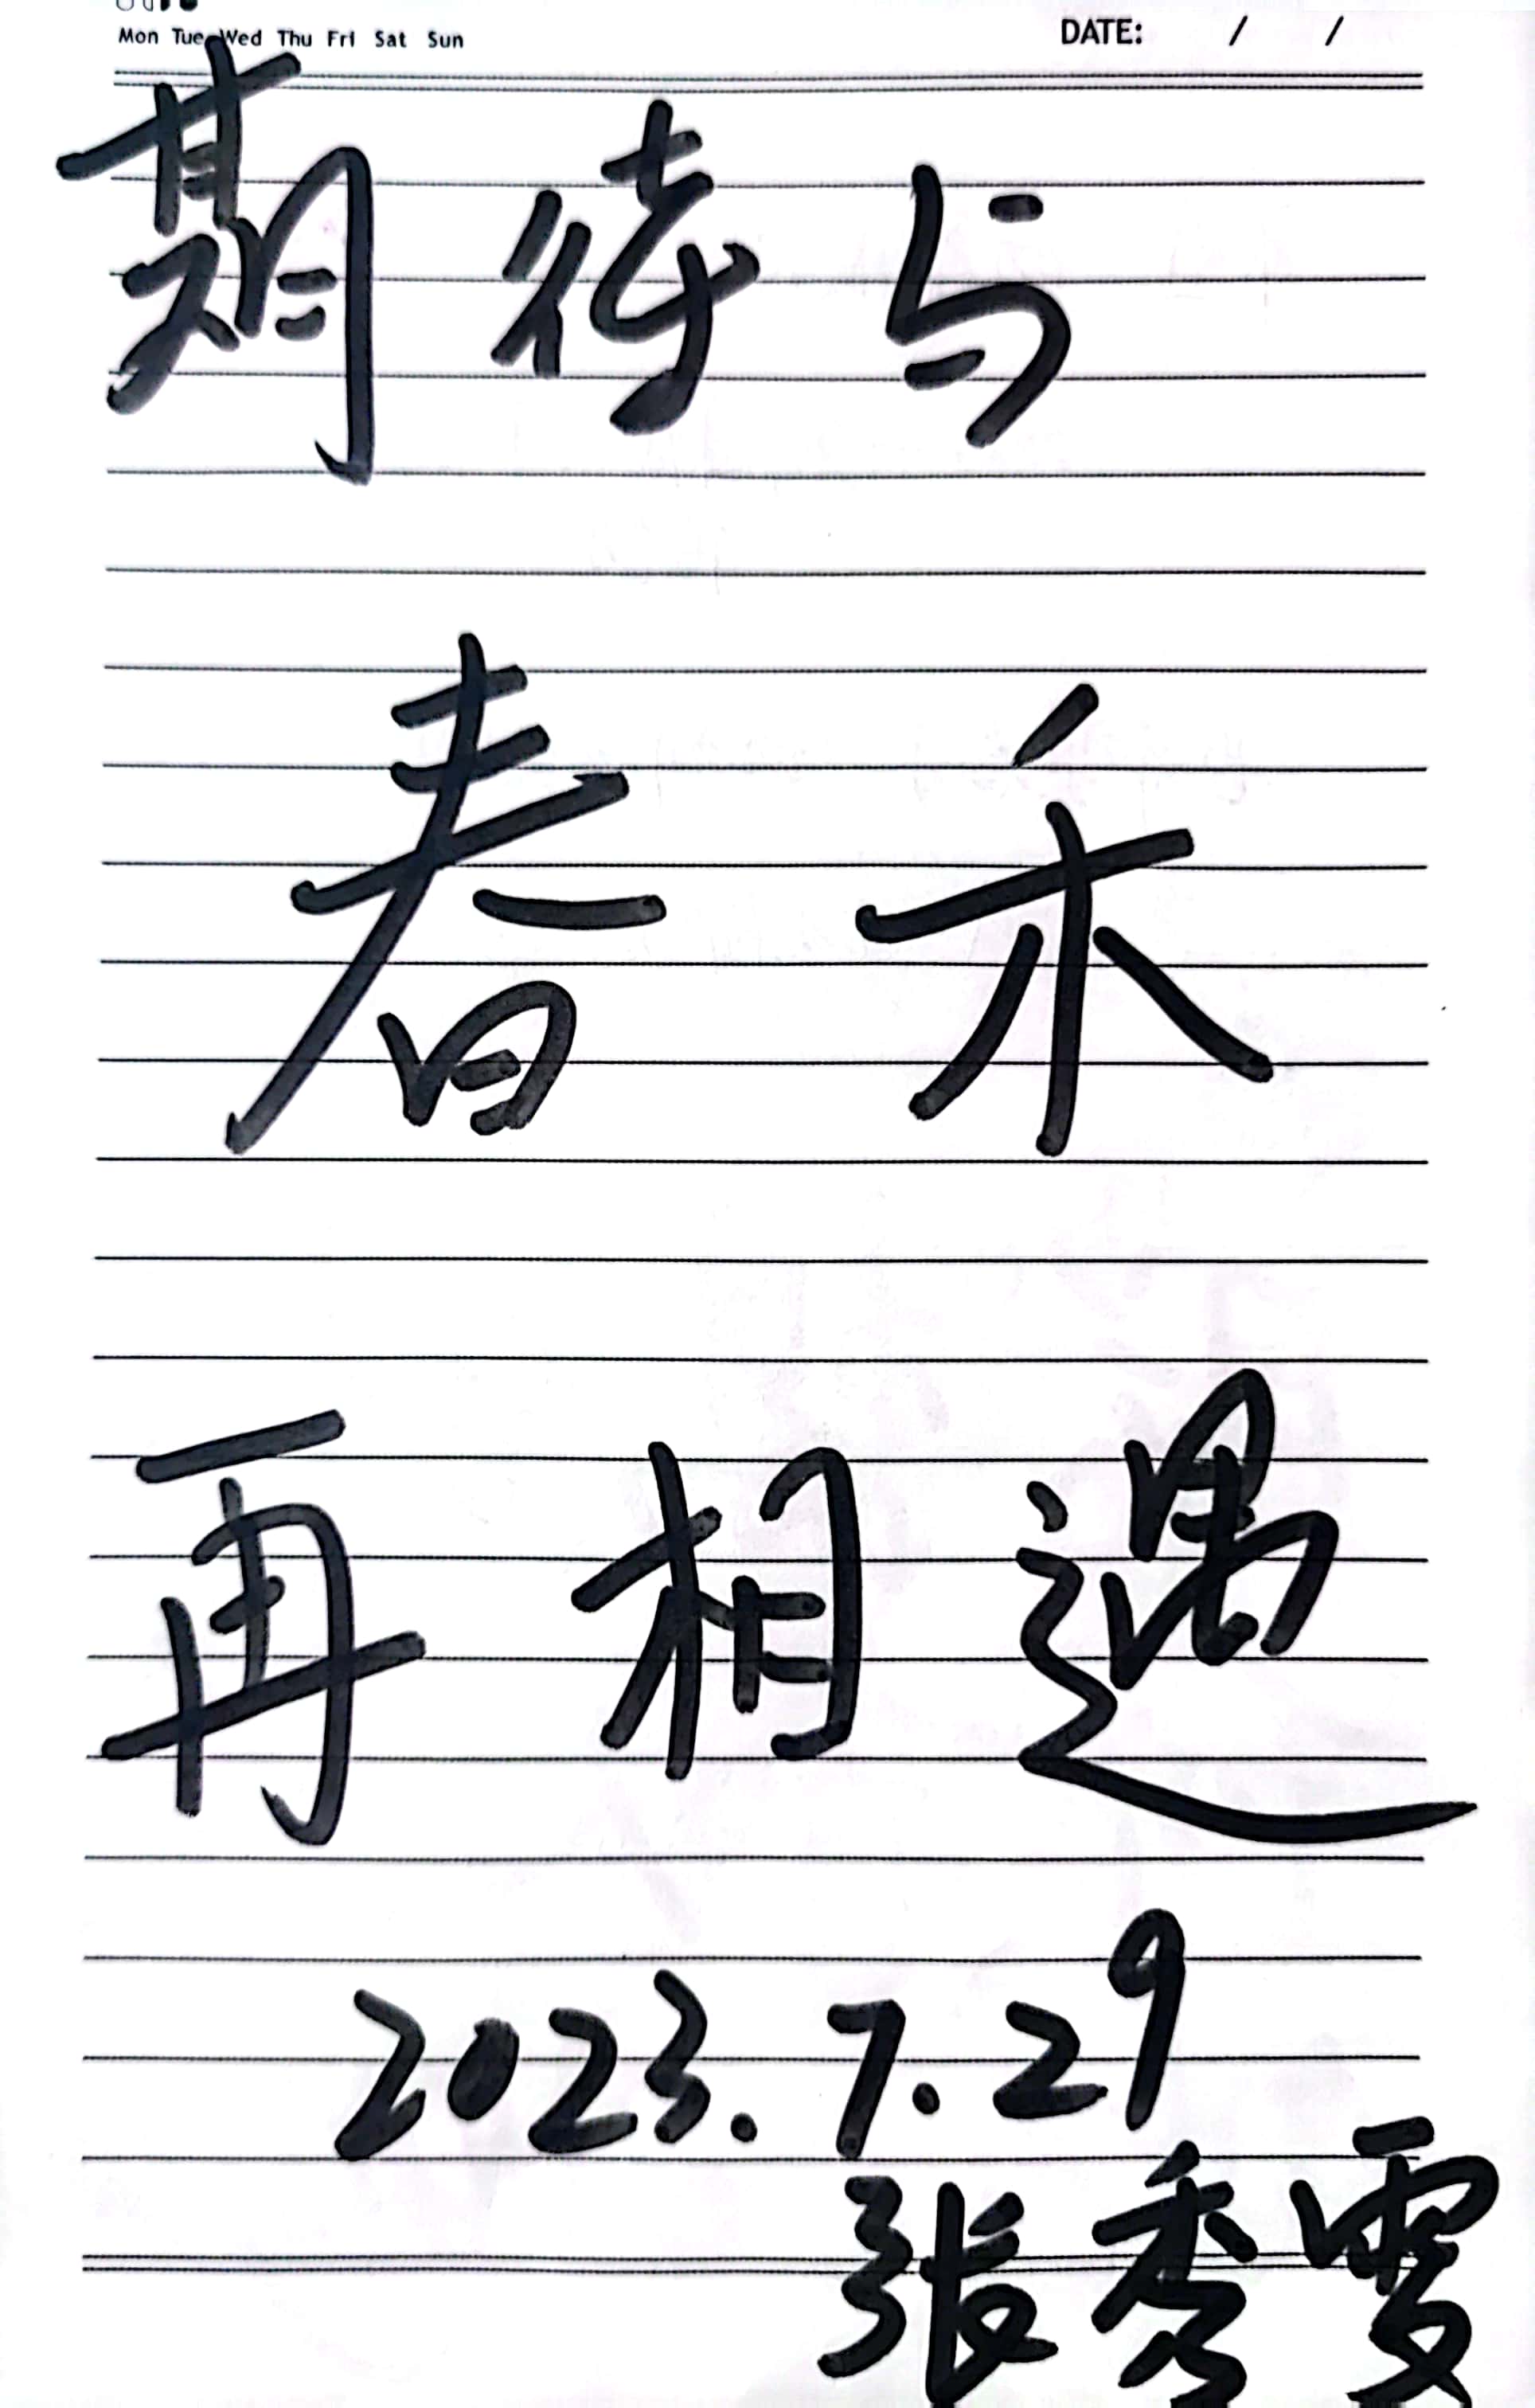 Mon Tue Wed Thu Fri Sat Sun DATE: / /
期待与
春禾
再相遇
2023.7.29
張秀雯